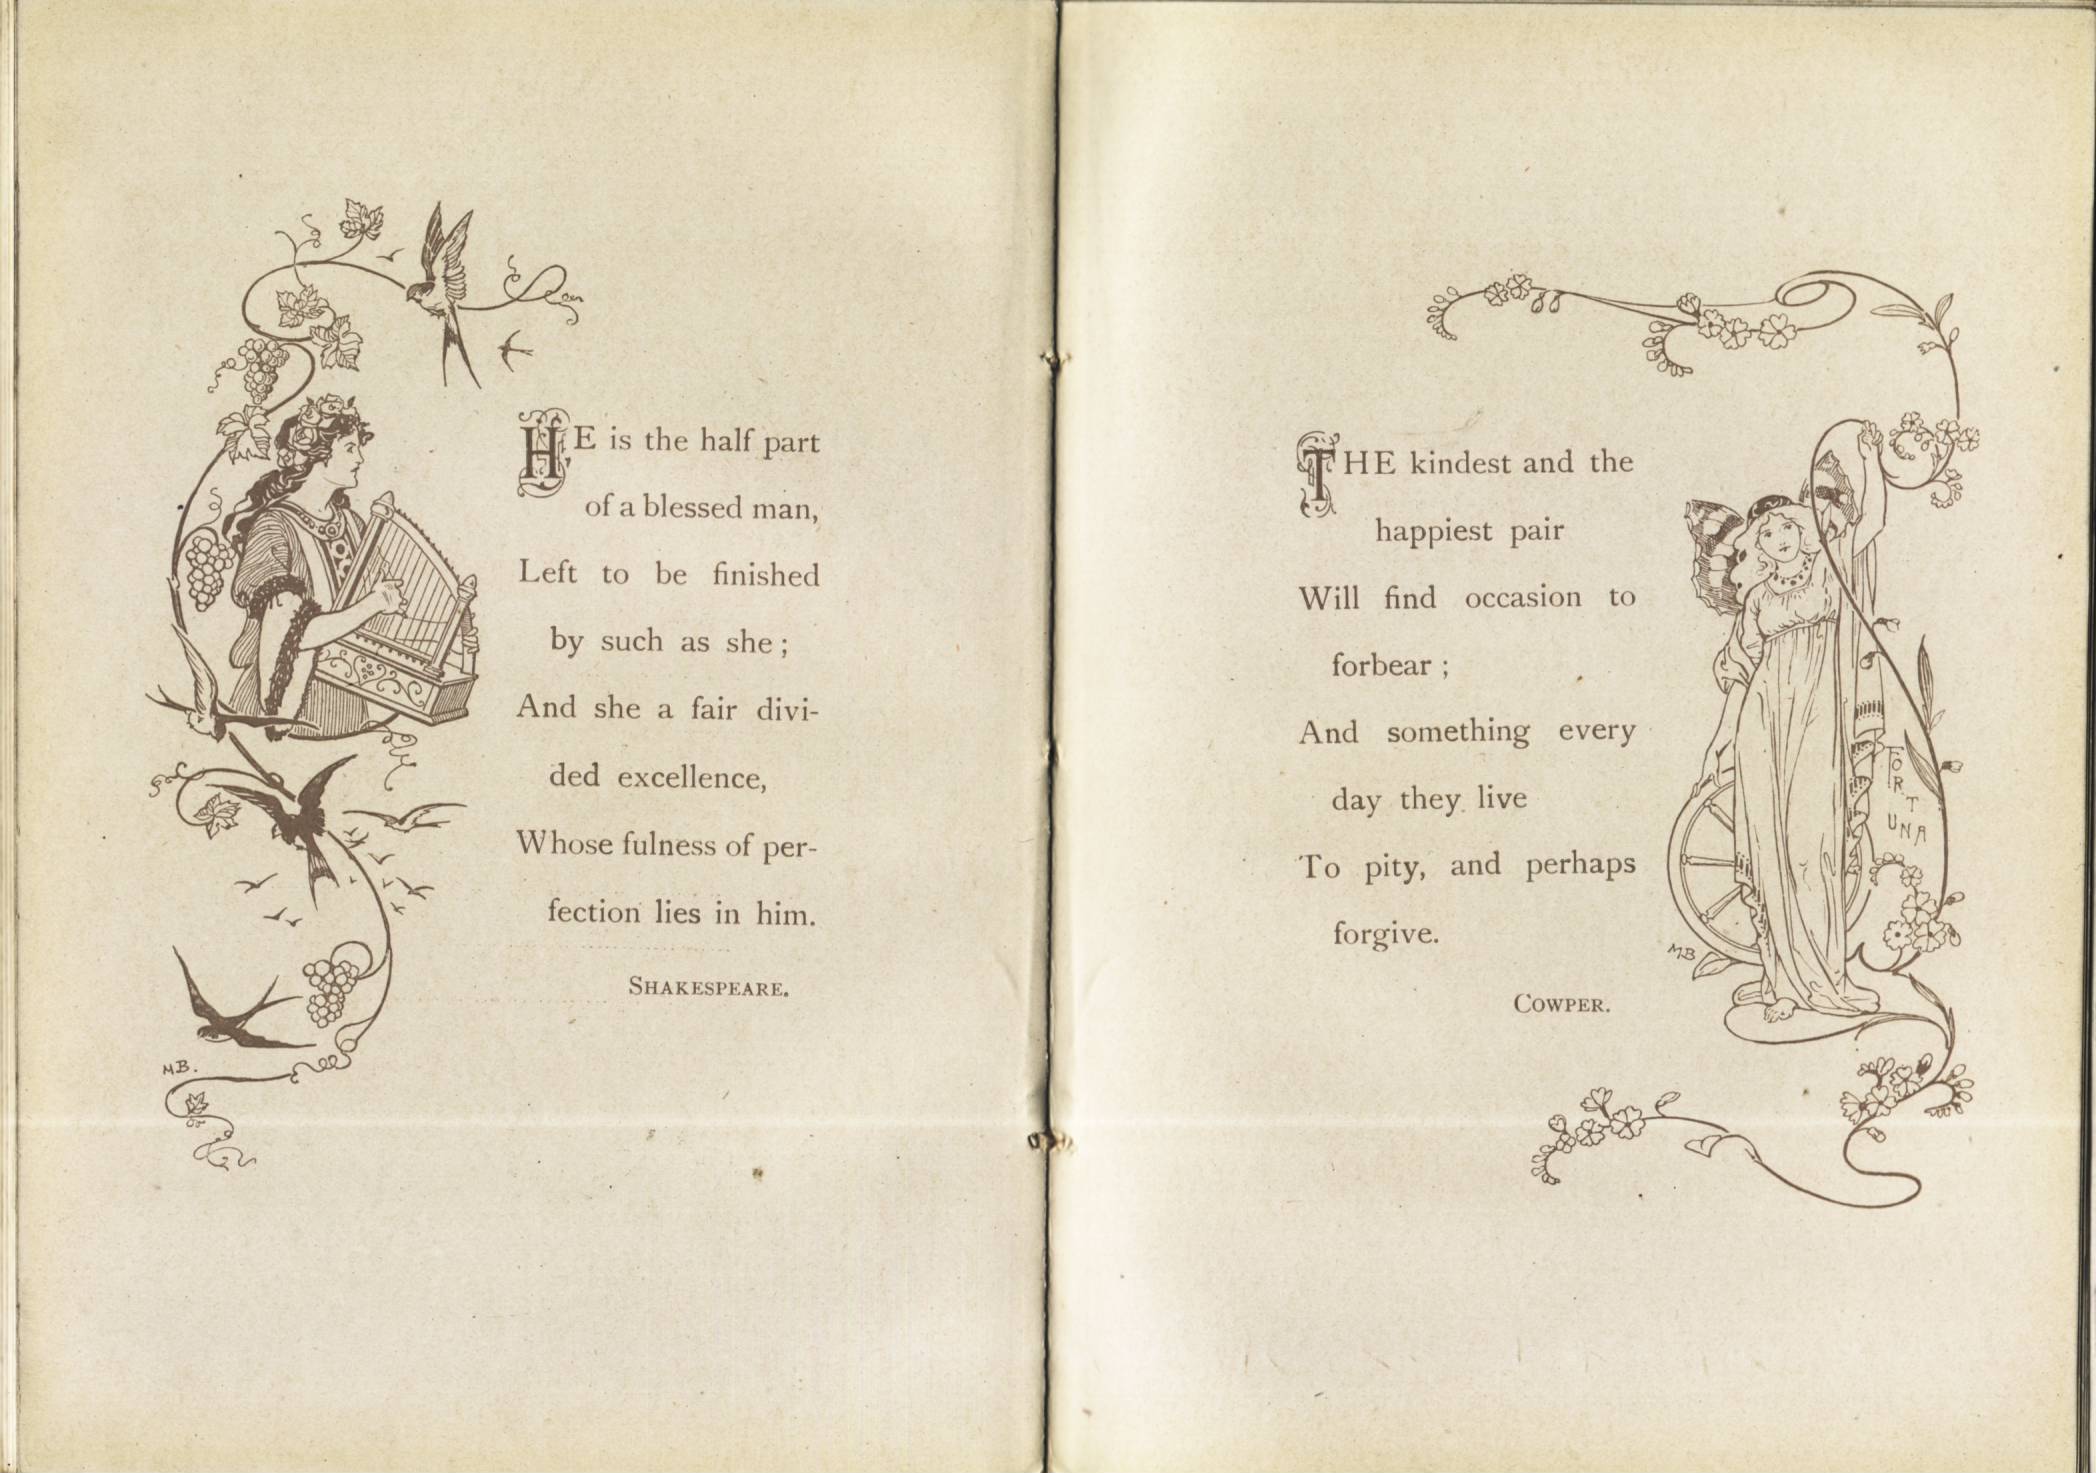 HE is the half part
of a blessed man,
Left to be finished
by such as she ;
And she a fair divi-
ded excellence,
Whose fulness of per-
fection lies in him.
SHAKESPEARE.
M.B.
THE kindest and the
happiest pair
Will find occasion to
forbear ;
And something every
day they live
To pity, and perhaps
forgive.
COWPER.
FOR
T
UNA
MB